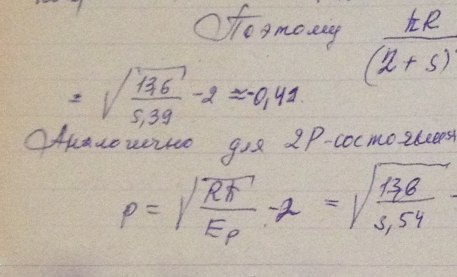 Поэтому ħR/(2+s)
= √(13,6/5,39) -2 ≈ -0,41.
Аналогично для 2P-состояния
p = √(Rħ/E_p) -2 = √(13,6/3,54) -